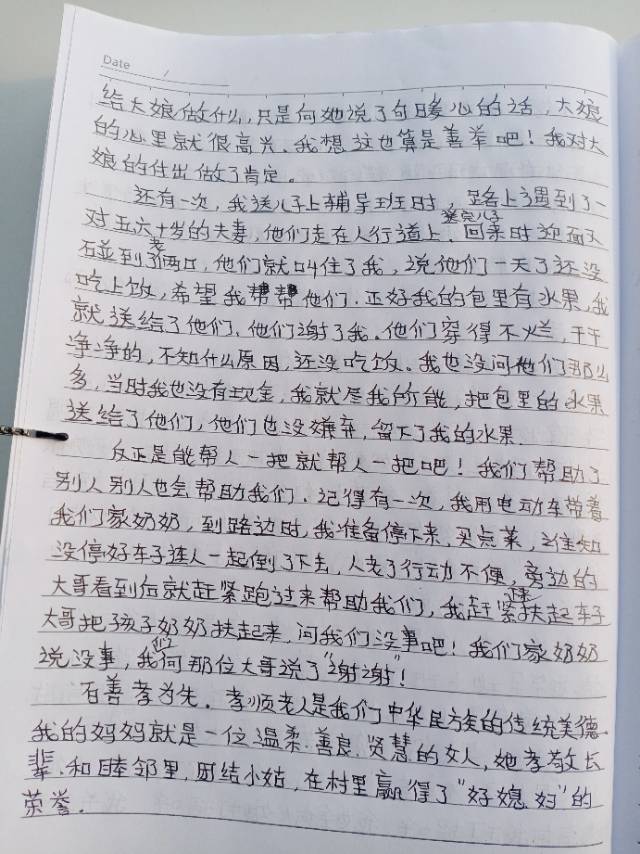 Date /
给大娘做什么,只是向她说了句暖心的话,大娘
的心里就很高兴、我想这也算是善举吧!我对大
娘的付出做了肯定。
还有一次,我送儿子上辅导班时,路上遇到了一
对五六十岁的夫妻,他们走在人行道上,送完儿子回来时迎面又
碰到了老俩口,他们就叫住了我,说他们一天了还没
吃上饭,希望我帮帮他们.正好我的包里有水果,我
就送给了他们,他们谢了我.他们穿得不烂,干干
净净的,不知什么原因,还没吃饭。我也没问他们那么
多,当时我也没有现金,我就尽我的所能,把包里的水果
送给了他们,他们也没嫌弃,留下了我的水果.
反正是能帮人一把就帮人一把吧!我们帮助了
别人别人也会帮助我们.记得有一次,我用电动车带着
我们家奶奶,到路边时,我准备停下来,买点菜,谁知
没停好车子连人一起倒了下去,人老了行动不便,旁边的
大哥看到后就赶紧跑过来帮助我们,我赶紧扶起车子
大哥把孩子奶奶扶起来,问我们没事吧!我们家奶奶
说没事,我们向那位大哥说了"谢谢"!
百善孝为先.孝顺老人是我们中华民族的传统美德.
我的妈妈就是一位温柔.善良.贤慧的女人,她孝敬长
辈.和睦邻里,团结小姑,在村里赢得了"好媳妇"的
荣誉.